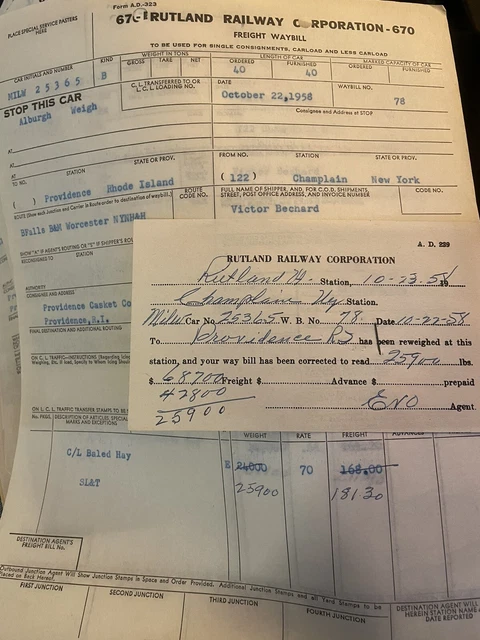 Form A.D.-323
PLACE SPECIAL SERVICE PASTERS HERE
670-RUTLAND RAILWAY CORPORATION-670
FREIGHT WAYBILL
TO BE USED FOR SINGLE CONSIGNMENTS, CARLOAD AND LESS CARLOAD
CAR INITIALS AND NUMBER
KIND
WEIGHT IN TONS
GROSS TARE NET
LENGTH OF CAR
ORDERED FURNISHED
MARKED CAPACITY OF CAR
ORDERED FURNISHED
MILW 25365 B
40 40
STOP THIS CAR
C.L. TRANSFERRED TO OR L.C.L. LOADING NO.
DATE
October 22,1958
WAYBILL NO.
78
Alburgh Weigh
Consignee and Address at STOP
AT
AT
TO NO. STATION STATE OR PROV.
FROM NO. STATION STATE OR PROV.
( ) Providence Rhode Island
(122) Champlain New York
ROUTE CODE NO.
FULL NAME OF SHIPPER, AND, FOR C.O.D. SHIPMENTS, STREET, POST OFFICE ADDRESS, AND INVOICE NUMBER
CODE NO.
BFalls B&M Worcester NYNH&H
Victor Bechard
AUTHORITY
CONSIGNEE AND ADDRESS
Providence Casket Co
Providence,R.I.
FINAL DESTINATION AND ADDITIONAL ROUTING
A. D. 229
RUTLAND RAILWAY CORPORATION
Rutland Station, 10-23-58
Champlain Ny Station.
Milw Car No. 25365 W. B. No. 78 Date 10-22-58
To Providence RI has been reweighed at this
station, and your way bill has been corrected to read 25900 lbs.
$ 68700 Freight $ Advance $ prepaid
42800
25900
Agent
NO. PKGS.
DESCRIPTION OF ARTICLES, SPECIAL MARKS AND EXCEPTIONS
WEIGHT RATE FREIGHT ADVANCES
C/L Baled Hay
E 24000 70 168.00
SL&T
25900 181 30
DESTINATION AGENT'S FREIGHT BILL No.
Outbound Junction Agent Will Show Junction Stamps in Space and Order Provided. Additional Junction Stamps and all Yard Stamps to be Placed on Back Hereof.
FIRST JUNCTION
SECOND JUNCTION
THIRD JUNCTION
FOURTH JUNCTION
DESTINATION AGENT WILL
HEREIN STATION NAME
DATE REPORTED